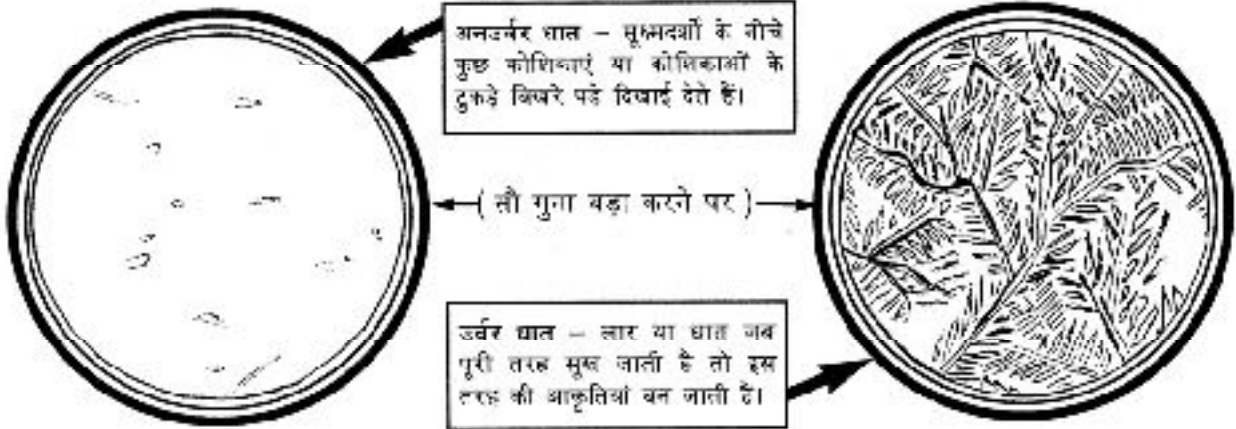 अनउर्वर धात – सूक्ष्मदर्शी के नीचे
कुछ कोशिकाएं या कोशिकाओं के
टुकड़े बिखरे पड़े दिखाई देते हैं।
( सौ गुना बड़ा करने पर )
उर्वर धात – लार या धात जब
पूरी तरह सूख जाती है तो इस
तरह की आकृतियां बन जाती हैं।